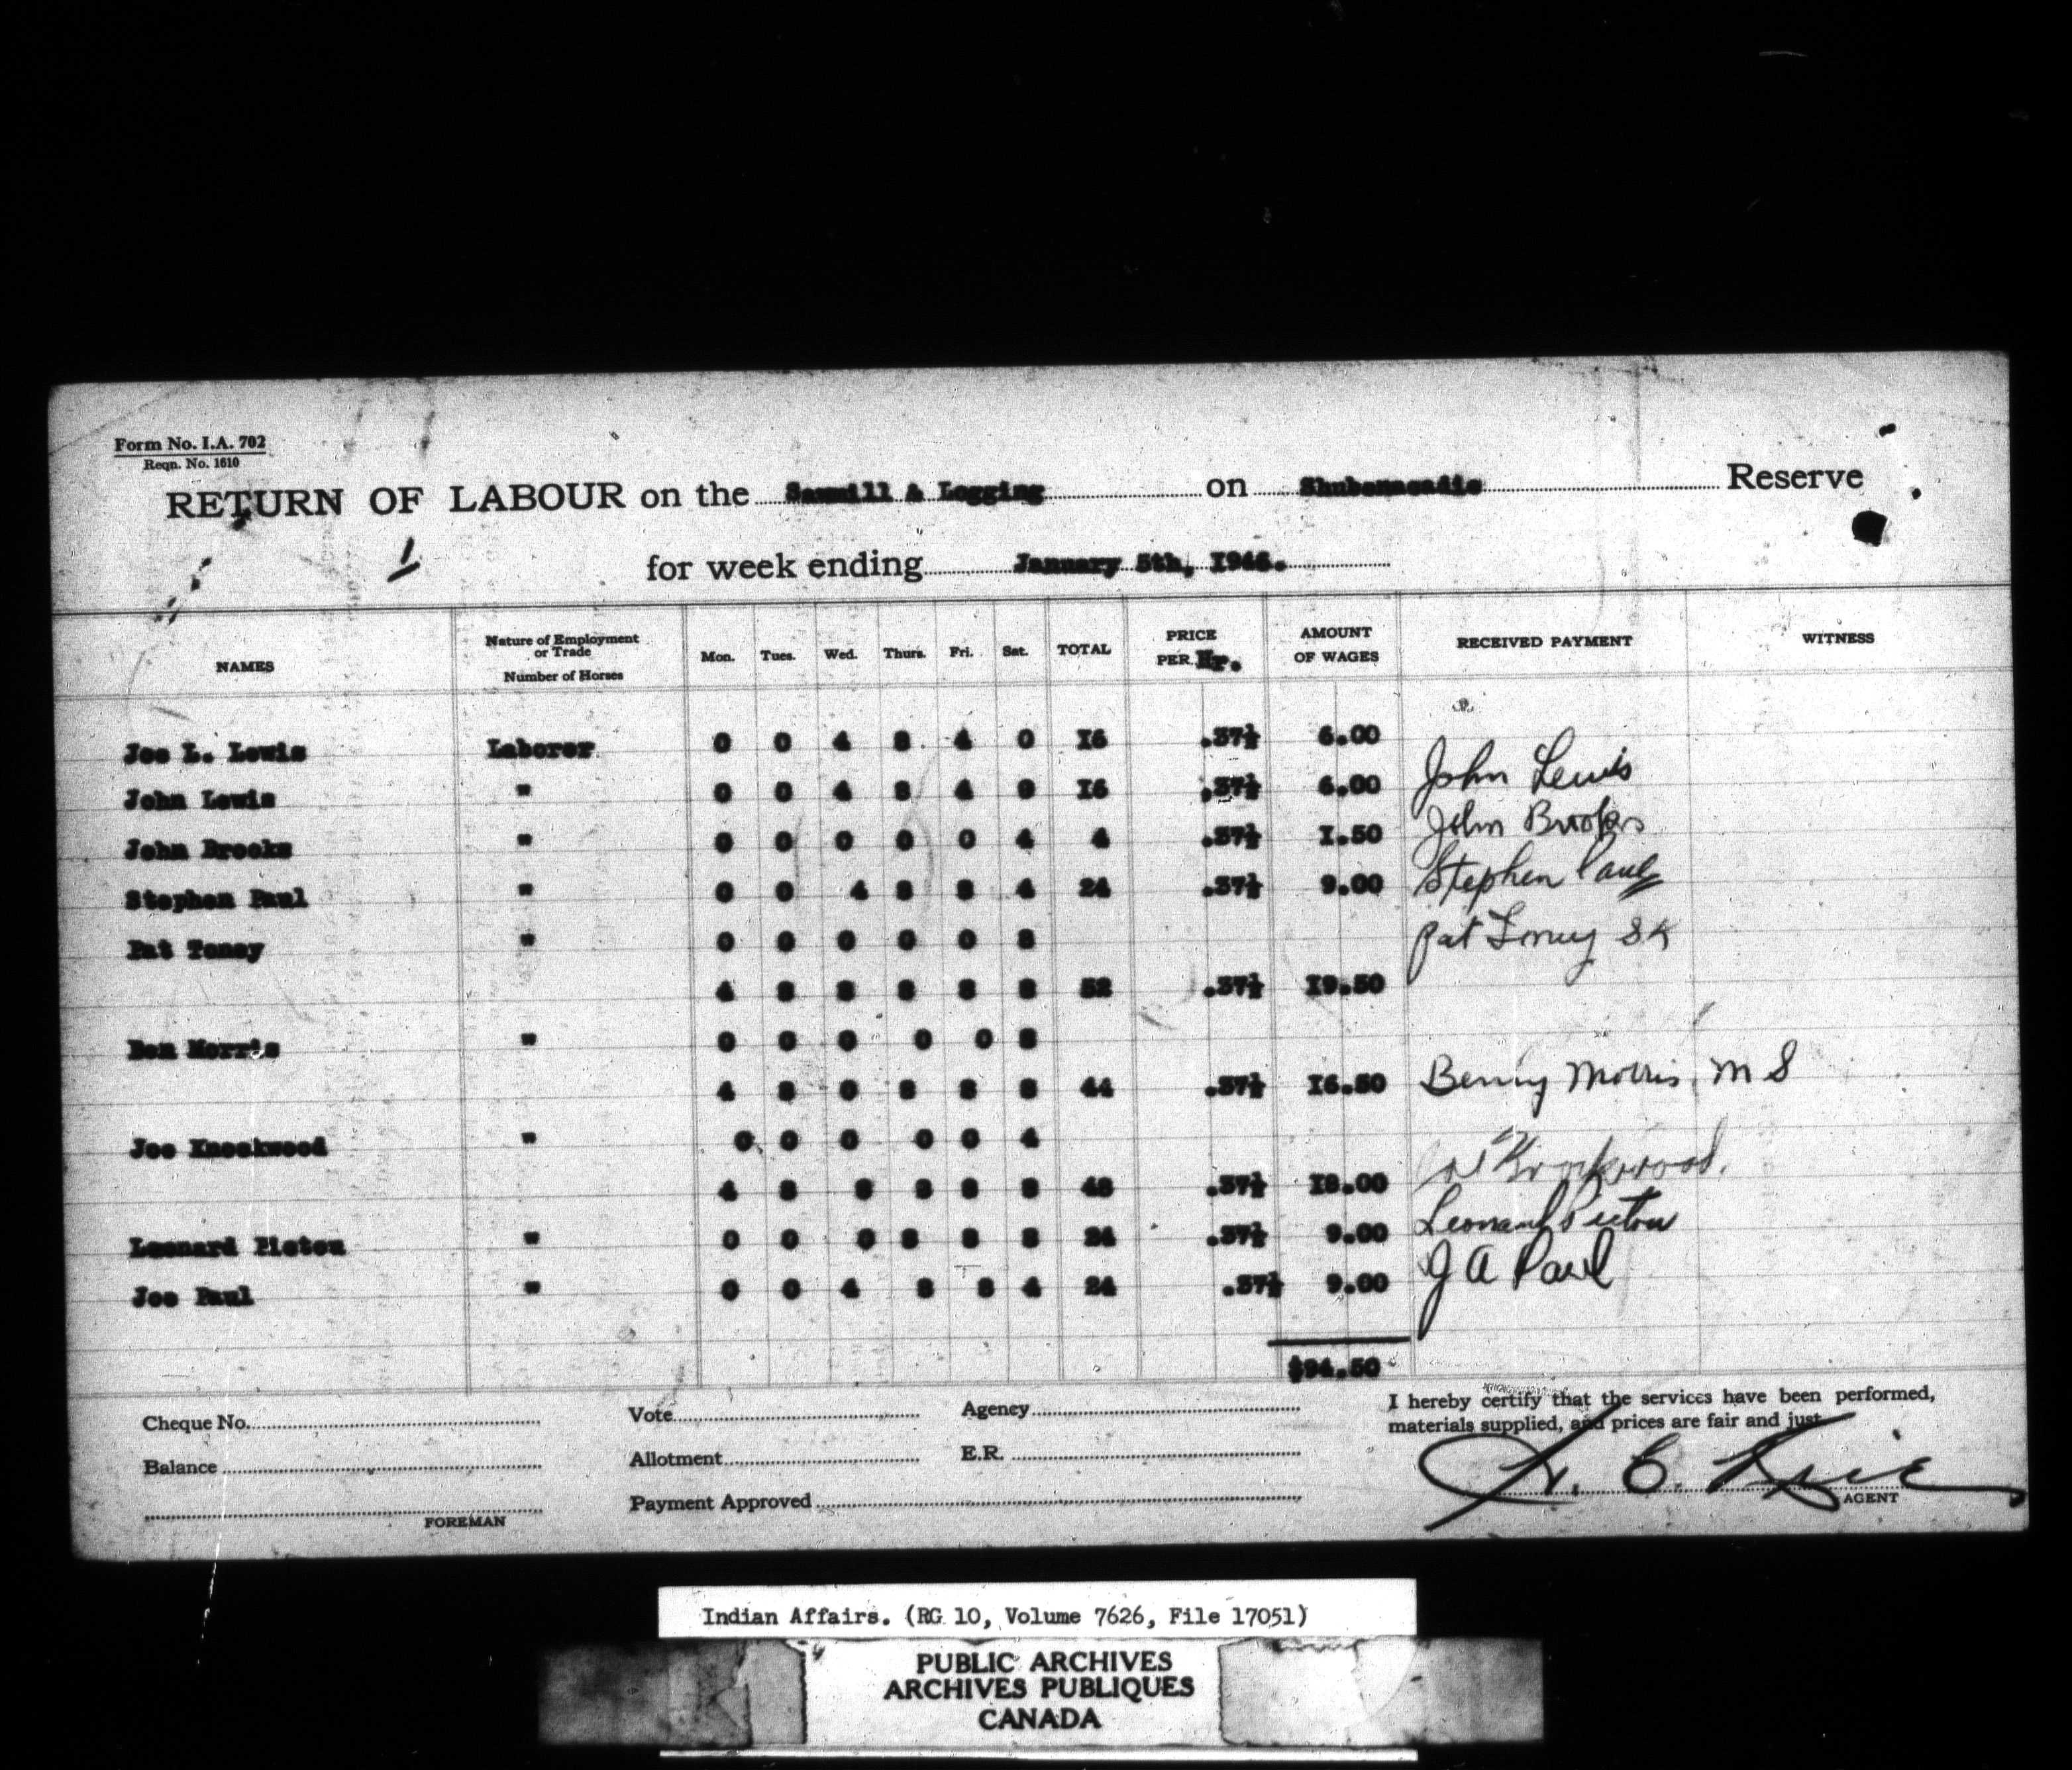 Form No. I.A. 702
Reqn. No. 1610
RETURN OF LABOUR on the Sawmill & Logging on Shubenacadie Reserve
for week ending January 5th, 1946.
NAMES Nature of Employment or Trade Number of Horses Mon. Tues. Wed. Thurs. Fri. Sat. TOTAL PRICE PER Hr. AMOUNT OF WAGES RECEIVED PAYMENT WITNESS
Joe L. Lewis Laborer 0 0 4 8 4 0 16 .37½ 6.00
John Lewis " 0 0 4 8 4 0 16 .37½ 6.00 John Lewis
John Brooks " 0 0 0 0 0 4 4 .37½ 1.50 John Brooks
Stephen Paul " 0 0 4 8 8 4 24 .37½ 9.00 Stephen Paul
Pat Toney " 0 0 0 0 0 8 Pat Toney
4 8 8 8 8 8 52 .37½ 19.50
Ben Morris " 0 0 0 0 0 8
4 8 0 8 8 8 44 .37½ 16.50 Benny Morris M S
Joe Knockwood " 0 0 0 0 0 4
4 8 8 8 8 8 48 .37½ 18.00 Knockwood.
Leonard Pictou " 0 0 0 8 8 8 24 .37½ 9.00 Leonard Pictou
Joe Paul " 0 0 4 8 8 4 24 .37½ 9.00 J A Paul
$94.50
Cheque No. Vote Agency I hereby certify that the services have been performed,
materials supplied, and prices are fair and just
Balance Allotment E.R.
H. C. Rice
Payment Approved AGENT
FOREMAN
Indian Affairs. (RG 10, Volume 7626, File 17051)
PUBLIC ARCHIVES
ARCHIVES PUBLIQUES
CANADA